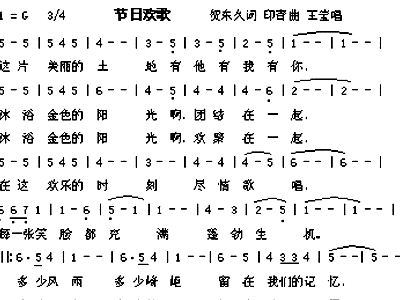 1 = G 3/4 节日欢歌 贺东久词 印青曲 王莹唱
5 - 5 | 5 4 5 | 4 - - | 3 - 5 | 3 - 5 | 2 - 5 | 1 - - | 1 - - |
这 片 美丽的 土 地 有 他 有 我 有 你,
5 - 5 | 5 4 5 | 6 - - | 6 - 5 | 4 - 4 | 4 - 6 | 2 - - | 2 -
沐 浴 金色的 阳 光 啊, 团 结 在 一 起,
沐 浴 金色的 阳 光 啊, 欢 聚 在 一 起,
5 - 5 | 5 4 5 | 4 - - | 3 - - | 3 - 4 | 4 - 5 | 6 - - | 6 - - |
在 这 欢乐的 时 刻 尽 情 歌 唱,
6 6 7 1 | 1 - 6 | 5 - 1 | 1 - - | 4 - 3 | 2 - 5 | 1 - - | 1 - - |
每一张笑 脸 都 充 满 蓬 勃 生 机。
‖: 6 · 5 4 | 1 - 6 | 6 · 5 4 | 1 - 6 | 5 - 4 | 4 3 3 4 | 5 - - | 5 -
多 少风 雨 多 少崎 岖 留 在 我们的记 忆,